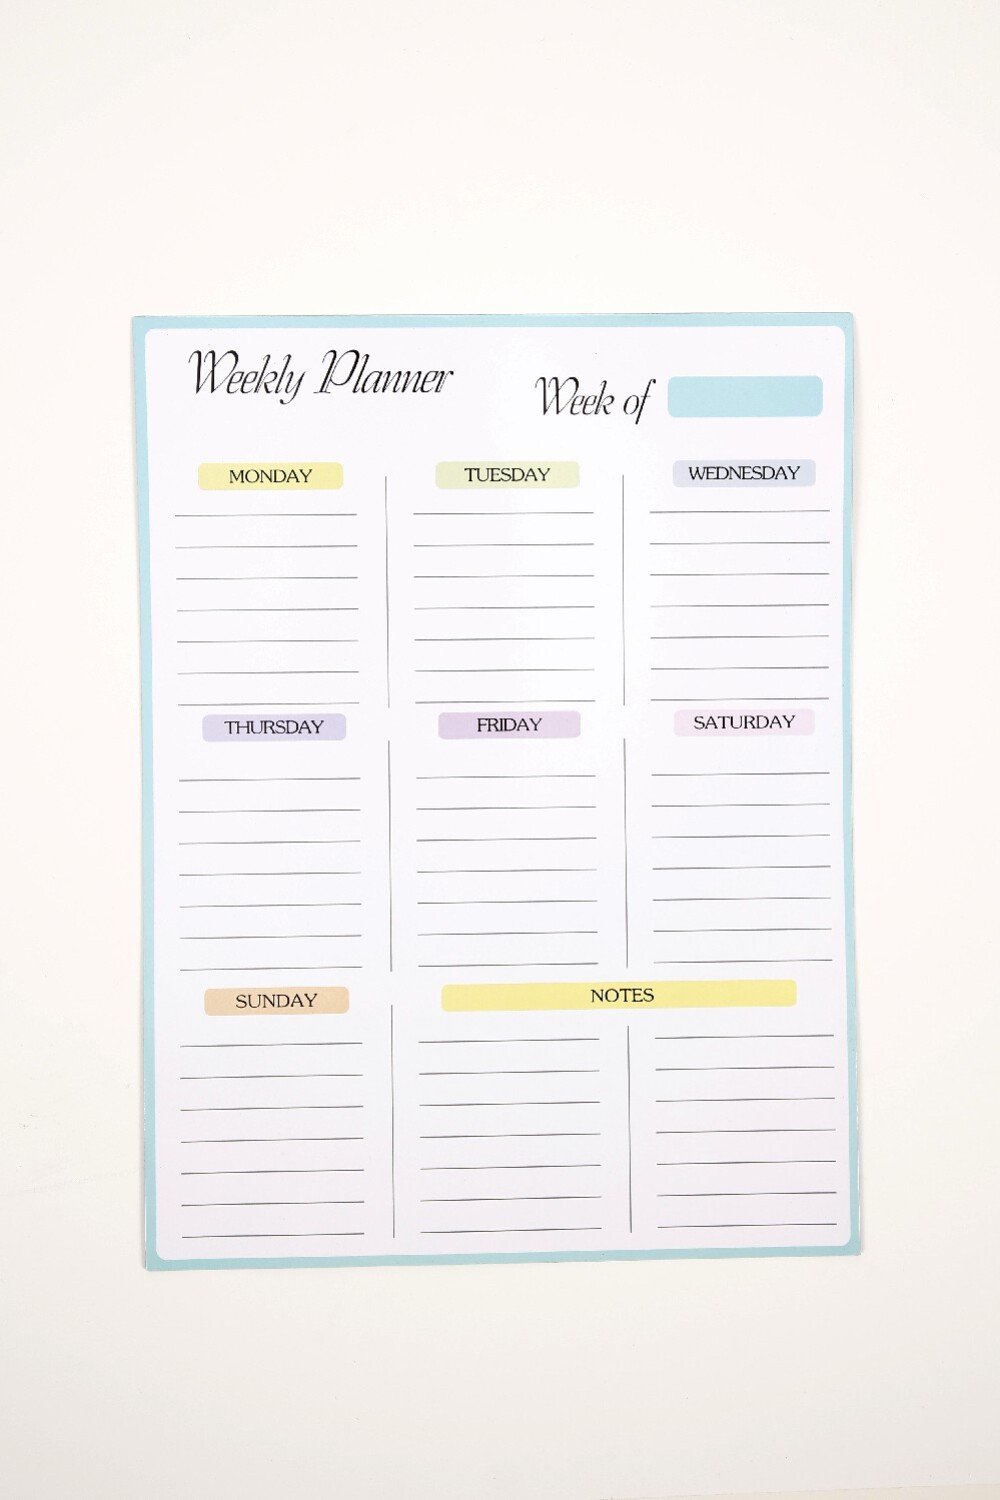 Weekly Planner
Week of
MONDAY
TUESDAY
WEDNESDAY
THURSDAY
FRIDAY
SATURDAY
SUNDAY
NOTES